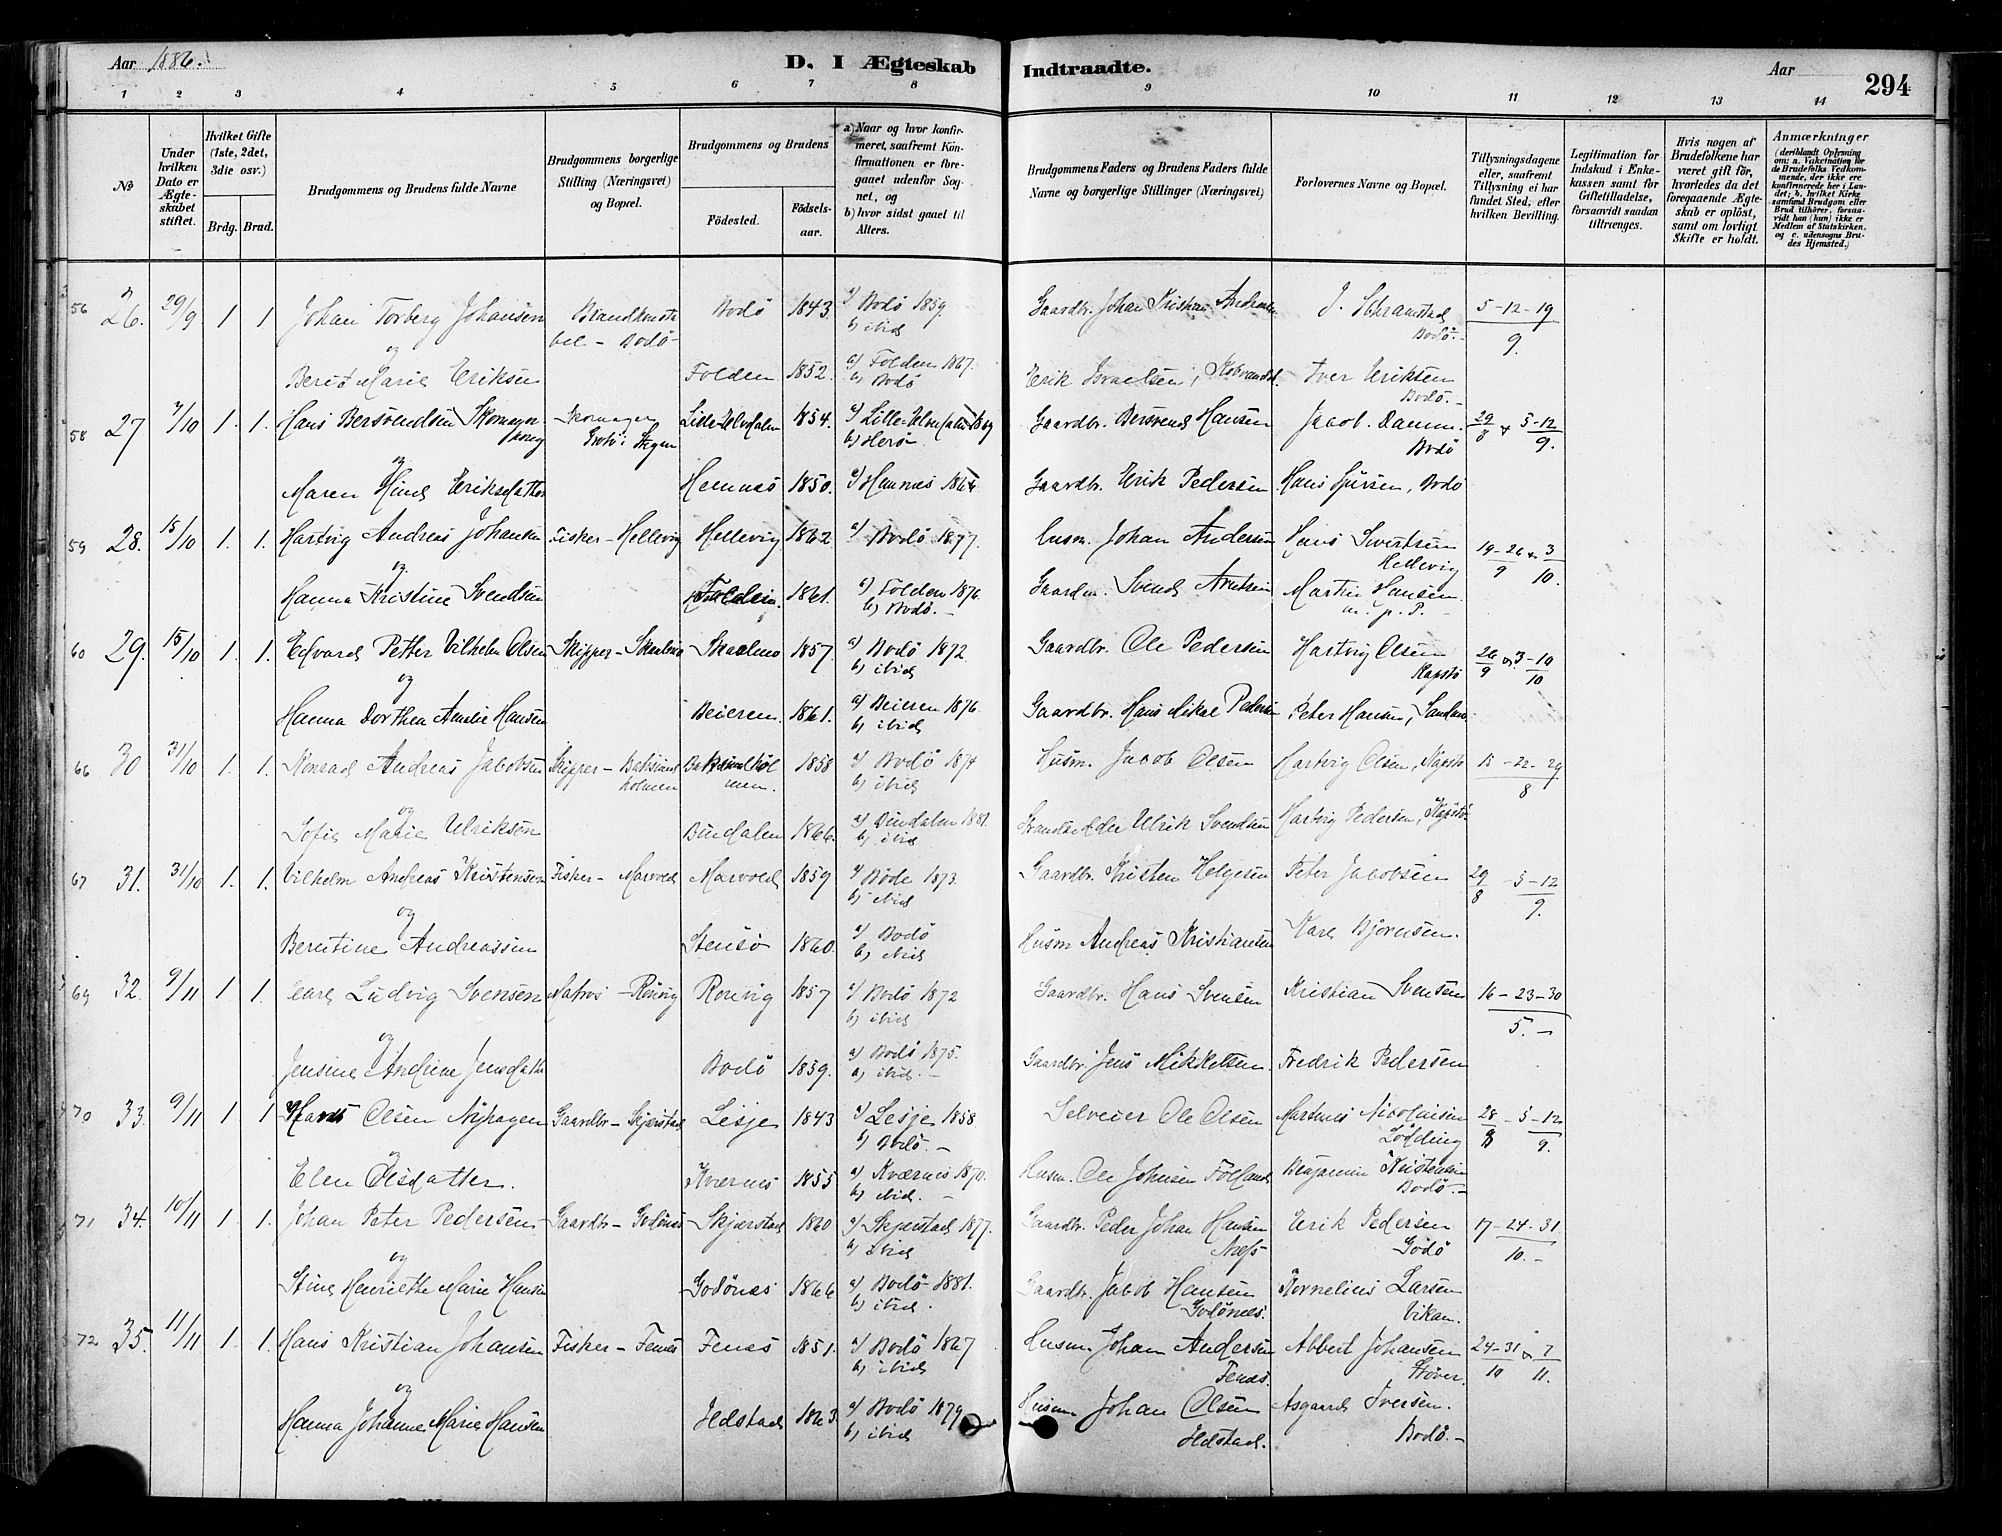 Aar 1886.
D. I Ægteskab Indtraadte.
Aar
294
1 2 3 4 5 6 7 8 9 10 11 12 13 14
No
Under hvilken Dato er Ægteskabet stiftet.
Hvilket Gifte (1ste, 2det, 3die osv.)
Brdg. Brud.
Brudgommens og Brudens fulde Navne
Brudgommens borgerlige Stilling (Næringsvei) og Bopæl.
Brudgommens og Brudens
Födested. Födselsaar.
a) Naar og hvor konfirmeret, saafremt Konfirmationen er foregaaet udenfor Sognet, og
b) hvor sidst gaaet til Alters.
Brudgommens Faders og Brudens Faders fulde Navne og borgerlige Stillinger (Næringsvei)
Forlovernes Navne og Bopæl.
Tillysningsdagene eller, saafremt Tillysning ei har fundet Sted, efter hvilken Bevilling.
Legitimation for Indskud i Enkekassen samt for Giftetilladelse, forsaavidt saadan tiltrænges.
Hvis nogen af Brudefolkene har været gift för, hvorledes da det foregaaende Ægteskab er oplöst, samt om lovligt Skifte er holdt.
Anmærkninger (deriblandt Oplysning om: a. Vakcination for de Brudefolks Vedkommende, der ikke ere konfirmerede her i Landet; b. hvilket Kirkesamfund Brudgom eller Brud tilhörer, forsaavidt han (hun) ikke er Medlem af Statskirken, og c. udensogns Brudes Hjemsted.)
56 26. 29/9 1 1 Johan Torberg Johansen Brandkonsta Bodö 1843. a) Bodö 1859. Gaardbr. Johan Kristian Andersen J. Schramstad 5-12-19
bel - Bodö b) ibid Bodö.- 9.
og
Berit Marie Eriksen Folden 1852. a) Folden 1867. Erik Israelsen, Iver Eriksen
b) Bodö Bodö.-
58 27 7/10 1. 1. Hans Bersvendsen Skomager Lille Elvdalen 1854. a) Lille-Elvedalen 1869 Gaardbr. Bersvend Hansen Jacob Damm. 29/8 & 5-12/9.
b) Herö Bodö
og
Maren Hines Eriksdatter Hemnes 1850. a) Hemnes 1864 Gaardbr. Erik Pedersen Hans Jürsen, Bodö
59 28. 15/10 1. 1. Hartvig Andreas Johansen Fisker-Hellevig Hellevig 1862 a) Bodö 1877. Husm. Johan Andersen Hans Sivertsen 19-26/9 & 3/10.
og Hellevig
Hanna Kristine Svendsen Folden. 1861. a) Folden 1876 Gaardm. Svend Arntsen Martin Hansen
b) Bodö.- m. p. P.
60 29. 15/10 1. 1. Edvard Petter Vilhelm Olsen Skipper- 1857. a) Bodö 1872 Gaardbr. Ole Pedersen Hartvig Olsen 26/9 & 3-10/10
b) ibid Kapstö
og
Hanna Dorthea Amalie Hansen Beieren. 1861. a) Beieren 1876 Gaardbr. Hans Mikal Pedersen Peter Hansen,
b) ibid
66 30 31/10 1. 1. Konrad Andreas Jacobsen Skipper- Baksund Baksundhol 1858 a) Bodö 1874 Husm. Jacob Olsen Hartvig Olsen, Kapstö 15-22-29
holmen men. b) ibid 8
og
Sofie Marie Ulriksen Bindalen 1866. a) Bindalen 1881. Strandsidder Ulrik Svendsen Hartvig Pedersen, Kapstö
b) ibid
67 31. 31/10 1. 1. Vilhelm Andreas Kristensen Fisker- Marvold Marvold 1859 a) Bodö 1873. Gaardbr. Kristen Helgesen Peter Jacobsen 29/8 - 5-12/9.
b) ibid
og
Berntine Andreassen Stensö 1860. a) Bodö Husm Andreas Kristiansen Karl Björnsen.
b) ibid
69 32. 9/11 1 1. Carl Ludvig Svensen Matros - Rönvig Rönvig 1857 a) Bodö 1872 Gaardbr. Hans Svensen Kristian Svensen 16-23-30
b) ibid 5.-
og
Jensine Andrine Jensdatter Bodö 1859. a) Bodö 1875. Gaardbr. Jens Mikkelsen Fredrik Pedersen
b) ibid.-
70 33. 9/11 1 1 Hans Olsen Nyhagen Gaardbr- Skjerstad Lesje 1843 a) Lesje 1858 Selveier Ole Olsen Martinus Nicolaisen 28/8 - 5-12/9.
b) Bodö.- Lödding
og
Elen Olsdatter. Kvernes 1855 a) Kværnes 1870. Husm. Ole Johnsen Folland Benjamin Kristensen
b) ibid.- Bodö.-
71 34. 10/11 1 1. Johan Peter Pedersen Gaardbr- Godönes Skjerstad 1860 a) Skjerstad 1877. Gaardbr. Peder Johan Hansen Erik Pedersen 17-24-31
b) ibid Næss Godö 10.-
og
Stine Henriethe Marie Hansen Godönes 1866 a) Bodö 1881. Gaardbr. Jacob Hansen Kornelius Larsen
b) ibid. Godönes. Vikan.
72 35. 11/11 1 1. Hans Kristian Johansen Fisker- Fenes Fenes 1851. a) Bodö 1867 Husm. Johan Andersen Albert Johansen 24-31/10 & 7/11.
b) ibid Fenes. Stöver.
og
Hanna Johanne Marie Hansen Ildstad 1863. a) Bodö 1879 Husm Johan Olsen Asgaard Iversen.
b) ibid Ildstad. Bodö.-